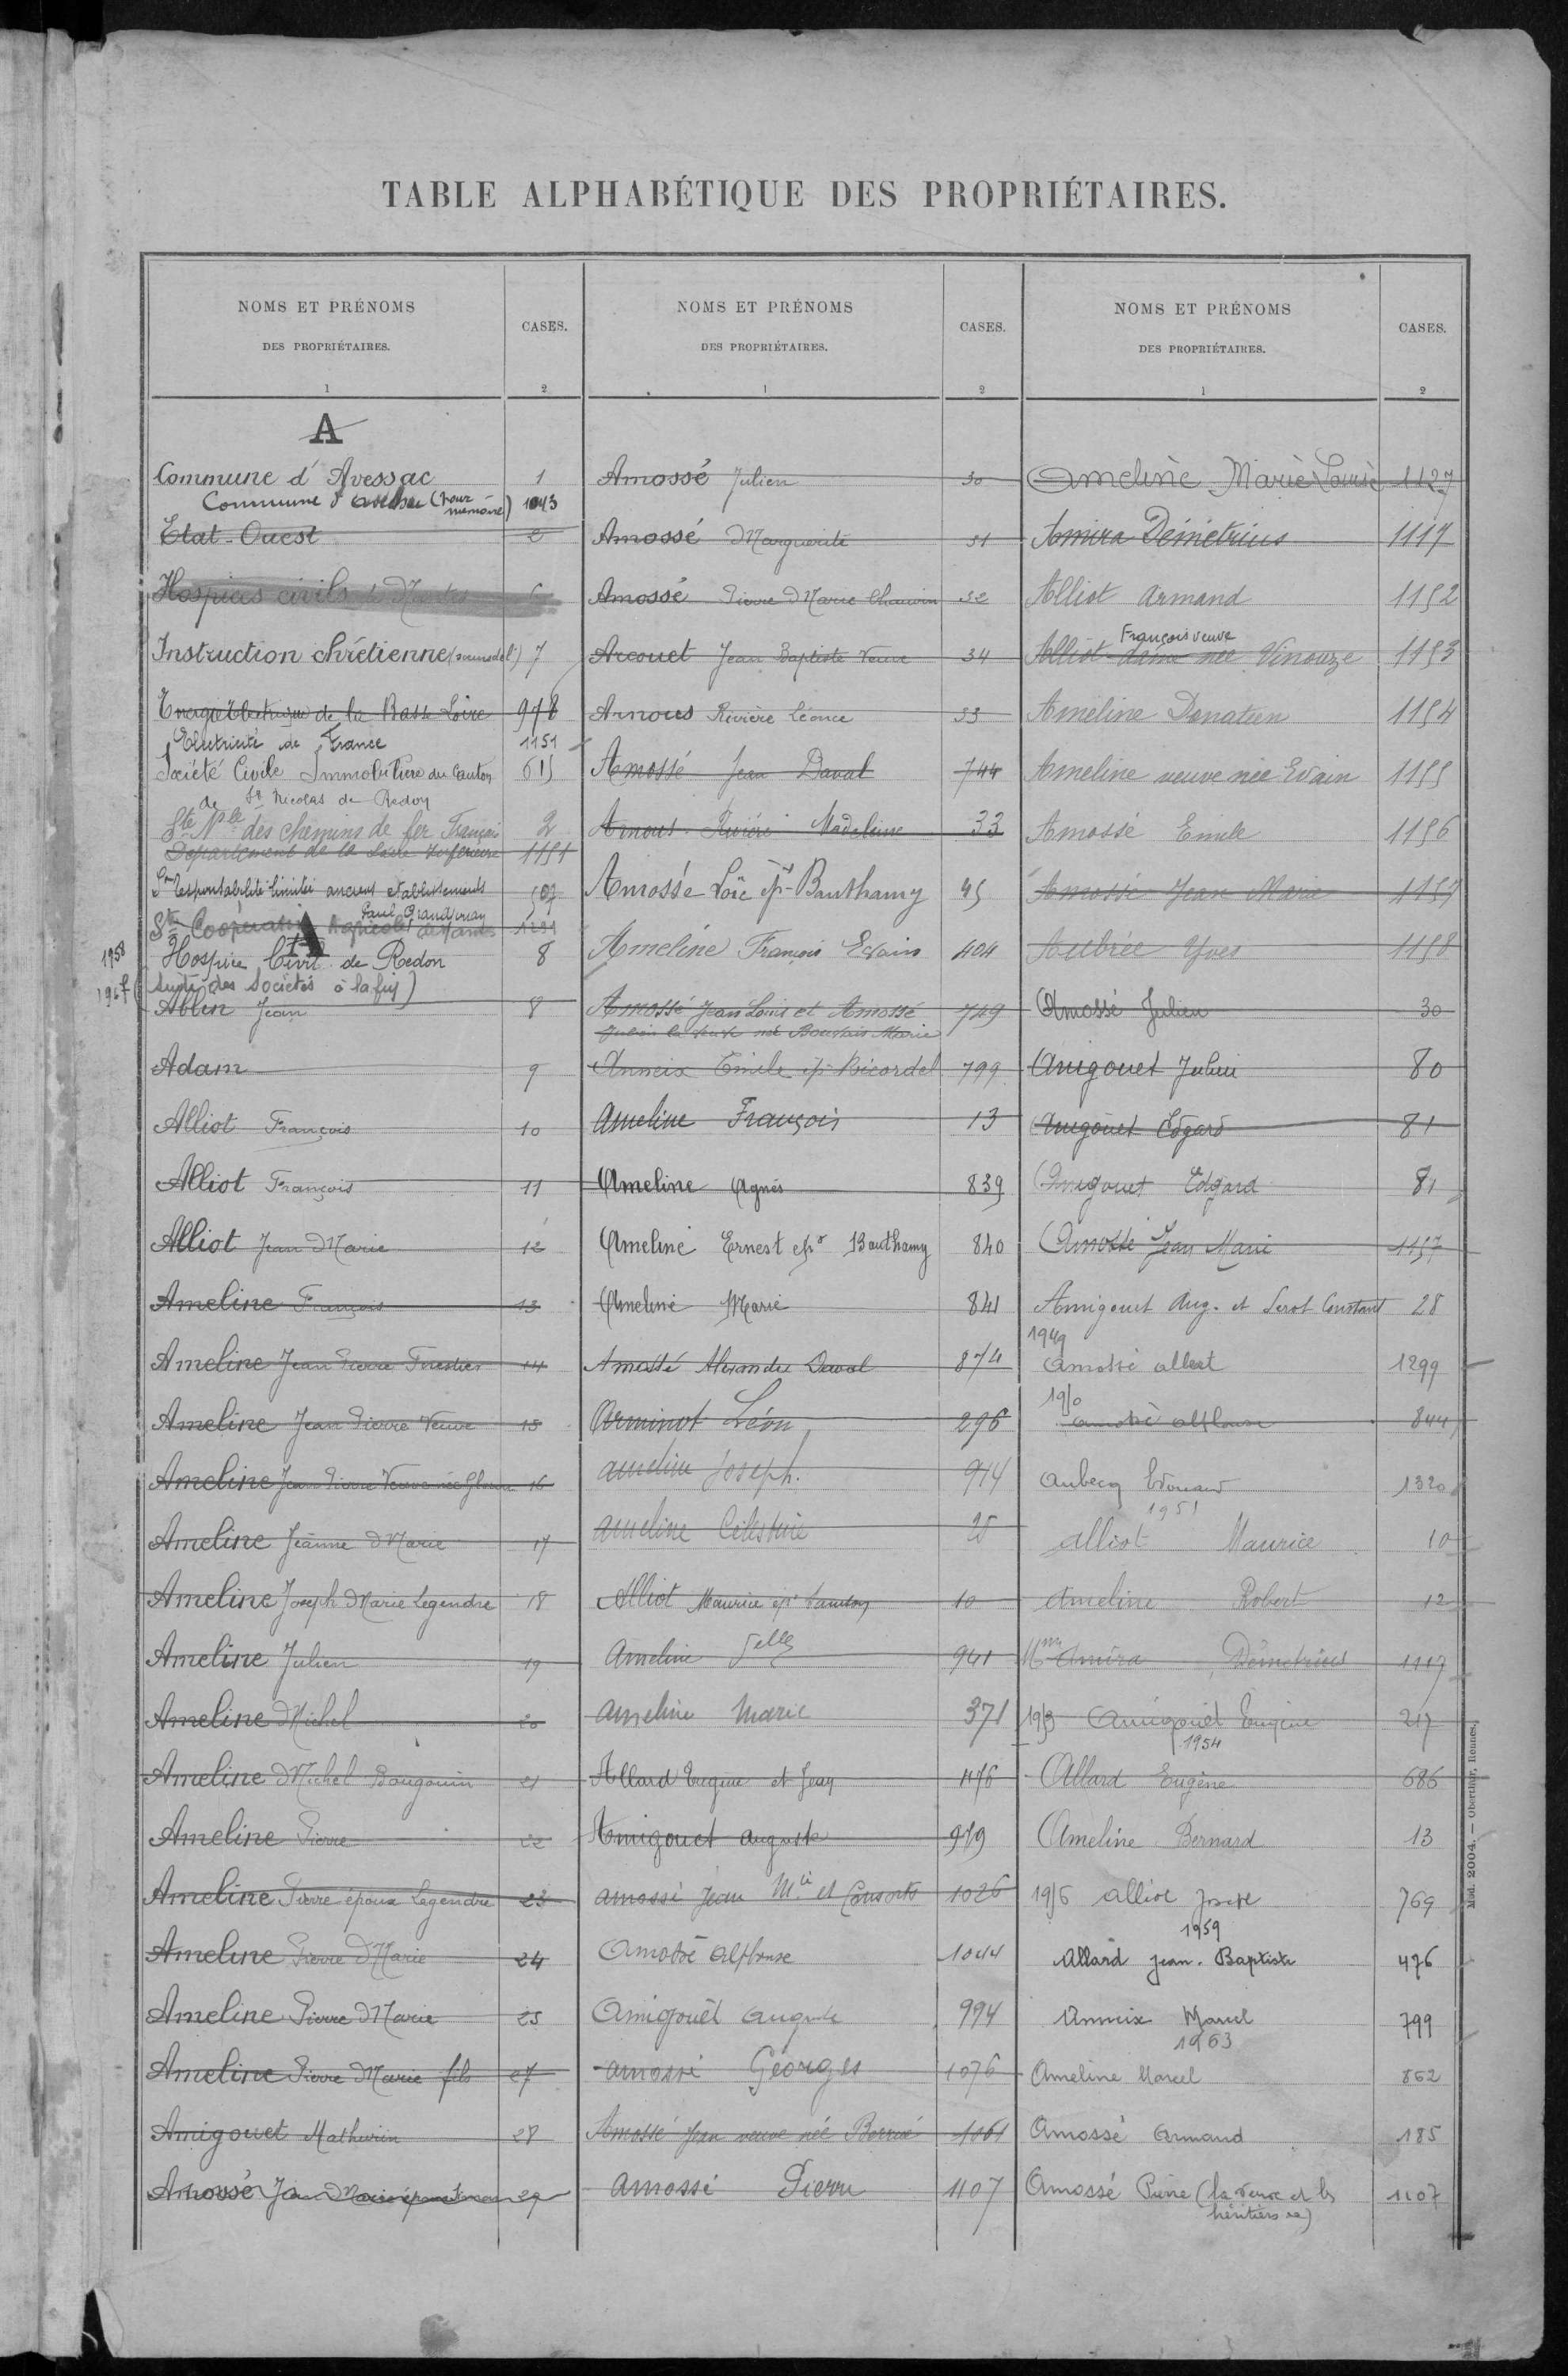 TABLE ALPHABÉTIQUE DES PROPRIÉTAIRES.
NOMS ET PRÉNOMS
DES PROPRIÉTAIRES.
CASES.
1
2
A
Commune d'Avessac 1
Commune d' (pour mémoire) 1043
Etat-Ouest 2
Hospices civils de Nantes 6
Instruction chrétienne 7
Energie Electrique de la Basse Loire 978
Electricité de France 1151
Société Civile Immobilière du Canton 615
de St Nicolas de Redon
Sté Nle des Chemins de fer Français 2
Département de la Loire Inférieure 1151
Responsabilité limitée anciens établissements 507
Sté Coopérative Agricole
1958 Hospice Civil de Redon 8
(suite des Sociétés à la fin)
A
Ablin Jean 8
Adam 9
Alliot François 10
Alliot François 11
Alliot Jean Marie 12
Ameline François 13
Ameline Jean Pierre 14
Ameline Jean Pierre Veuve 15
Ameline Jean Pierre Veuve née 16
Ameline Jeanne Marie 17
Ameline Joseph Marie Legendre 18
Ameline Julien 19
Ameline Michel 20
Ameline Michel Bougouin 21
Ameline Pierre 22
Ameline Pierre époux Legendre 23
Ameline Pierre Marie 24
Ameline Pierre Marie 25
Ameline Pierre Marie fils 27
Amigouet Mathurin 28
Amossé Jean Marie 29
NOMS ET PRÉNOMS
DES PROPRIÉTAIRES.
CASES.
1
2
Amossé Julien 30
Amossé Marguerite 31
Amossé Pierre Marie Chauvin 32
Arcouet Jean Baptiste Veuve 34
Arnous Rivière Léonce 33
Amossé Jean Daval 744
Arnous-Rivière Madeleine 33
Amossé Loïc ép. Bauthamy 45
Ameline François Evain 404
Amossé Jean Louis et Amossé 749
Julien la veuve née Marie
Anneix Emile ép. Ricordel 799
Ameline François 13
Ameline Agnès 839
Ameline Ernest ép. Bauthamy 840
Ameline Marie 841
Amossé Alexandre Daval 874
Arminot Léon 296
Ameline Joseph. 914
Ameline Célestine 25
Alliot Maurice ép. 10
Ameline 941
Ameline Marie 371
Allard Eugène et Jean 476
Amigouet Auguste 979
Amossé Jean Mie et Consorts 1026
Amossé Alphonse 1044
Amigouët Auguste 994
Amossé Georges 1076
Amossé Jean veuve née 1061
Amossé Pierre 1107
NOMS ET PRÉNOMS
DES PROPRIÉTAIRES.
CASES.
1
2
Ameline Marie Louise 1127
Amira Démétrius 1117
Alliot Armand 1152
François veuve
Alliot dame née Vinouze 1153
Ameline Donatien 1154
Ameline veuve née Evain 1155
Amossé Emile 1156
Amossé Jean Marie 1157
Aubrée Yves 1158
Amossé Julien 30
Amigouet Julien 80
Amigouet Edgard 81
Amigouet Edgard 81
Amossé Jean Marie 1157
Amigouet Aug. et Serot Constant 28
1949
Amossé Albert 1299
1950
Amossé Alphonse 844
Aubecq Edouard 1320
1951
Alliot Maurice 10
Ameline Robert 12
Mme Amira Démétrius 1117
1953 Amigouët Eugène 217
1954
Allard Eugène 686
Ameline Bernard 13
1956 Alliot Joseph 769
1959
Allard Jean-Baptiste 476
Anneix Marcel 799
1963
Ameline Marcel 862
Amossé Armand 185
Amossé Pierre (la veuve et les 1107
héritiers)
Mod. 2004. — Oberthür, Rennes.